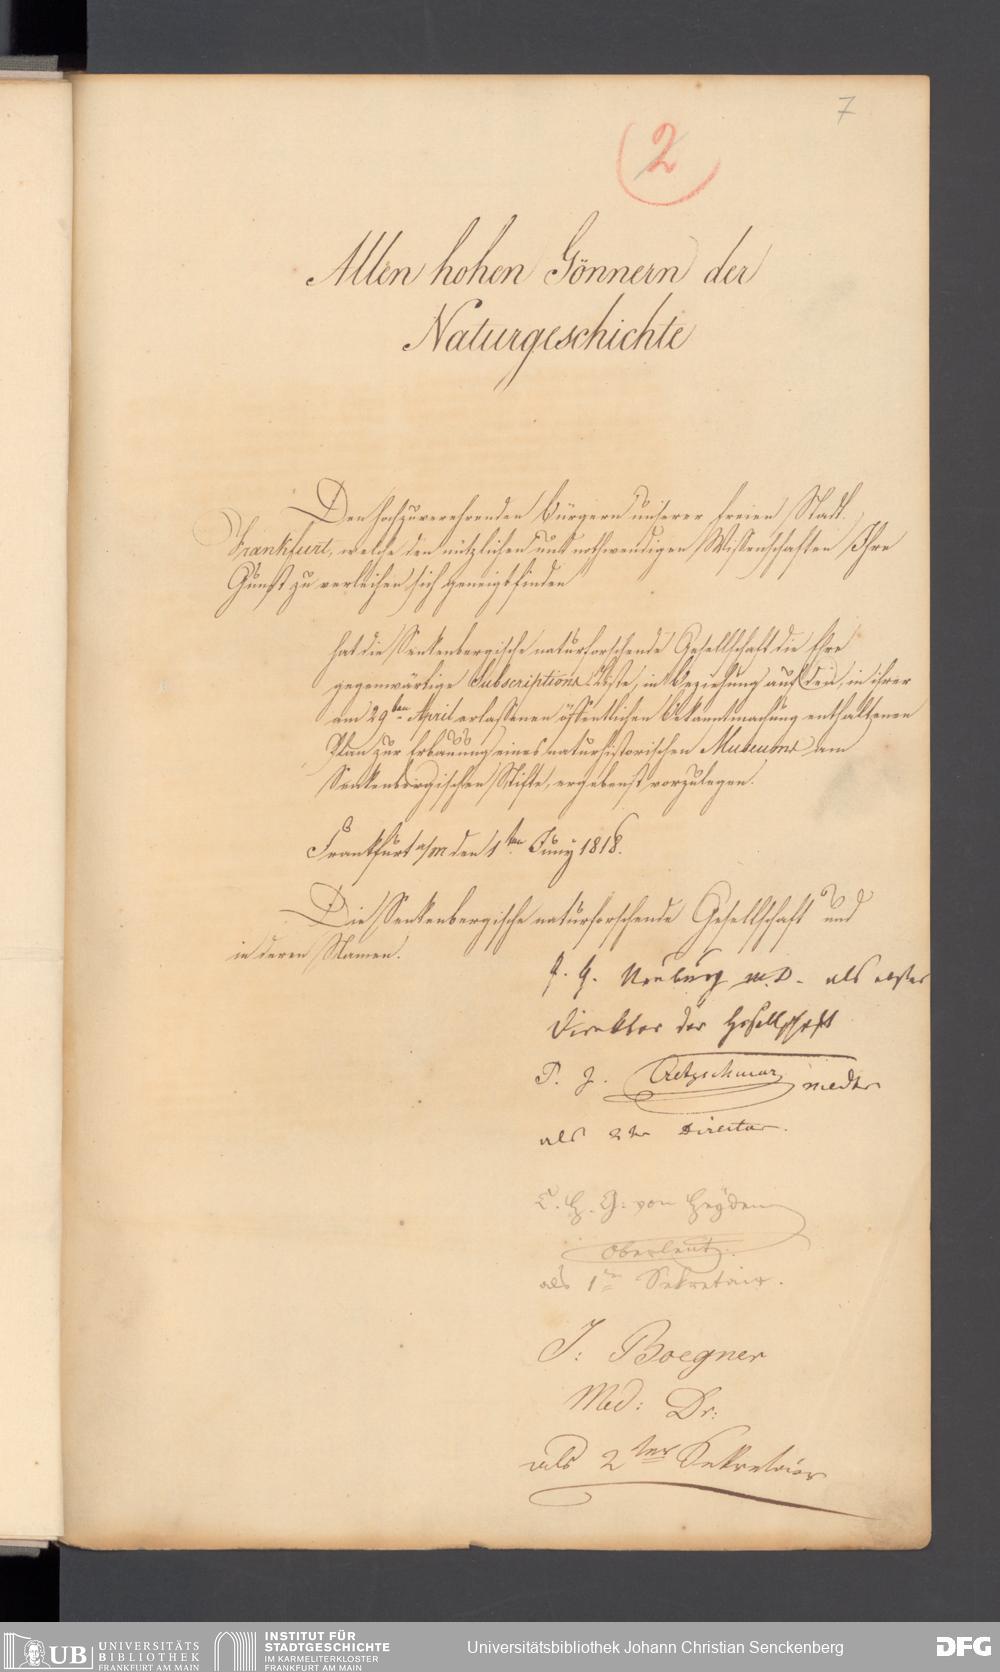 7
2
Allen hohen Gönnern der
Naturgeschichte
Den hochzuverehrenden Bürgern unserer freien Stadt
Frankfurt, welche den nützlichen und nothwendigen Wissenschaften Ihre
Gunst zu verleihen sich geneigt finden
hat die Senkenbergische naturforschende Gesellschaft die Ehre
gegenwärtige Subscriptions Liste, in Beziehung auf den, in ihrer
am 29ten April erlassenen öffentlichen Bekanntmachung enthaltenen
Plan zur Erbauung eines naturhistorischen Museums am
Senkenbergischen Stifte, ergebenst vorzulegen.
Frankfurt a/m den 1ten Juny 1818.
Die Senkenbergische naturforschende Gesellschaft und
in deren Namen.
J. G. Neuburg M.D. als erster
Direktor der Gesellschaft
P. J. Cretzschmar
als 2ter Director.
C. H. G. von Heyden
Oberleut.
als 1ter Sekretair.
J: Boegner
Med: Dr:
als 2ter Sekretair
UB UNIVERSITÄTS
BIBLIOTHEK
FRANKFURT AM MAIN
INSTITUT FÜR
STADTGESCHICHTE
IM KARMELITERKLOSTER
FRANKFURT AM MAIN
Universitätsbibliothek Johann Christian Senckenberg
DFG